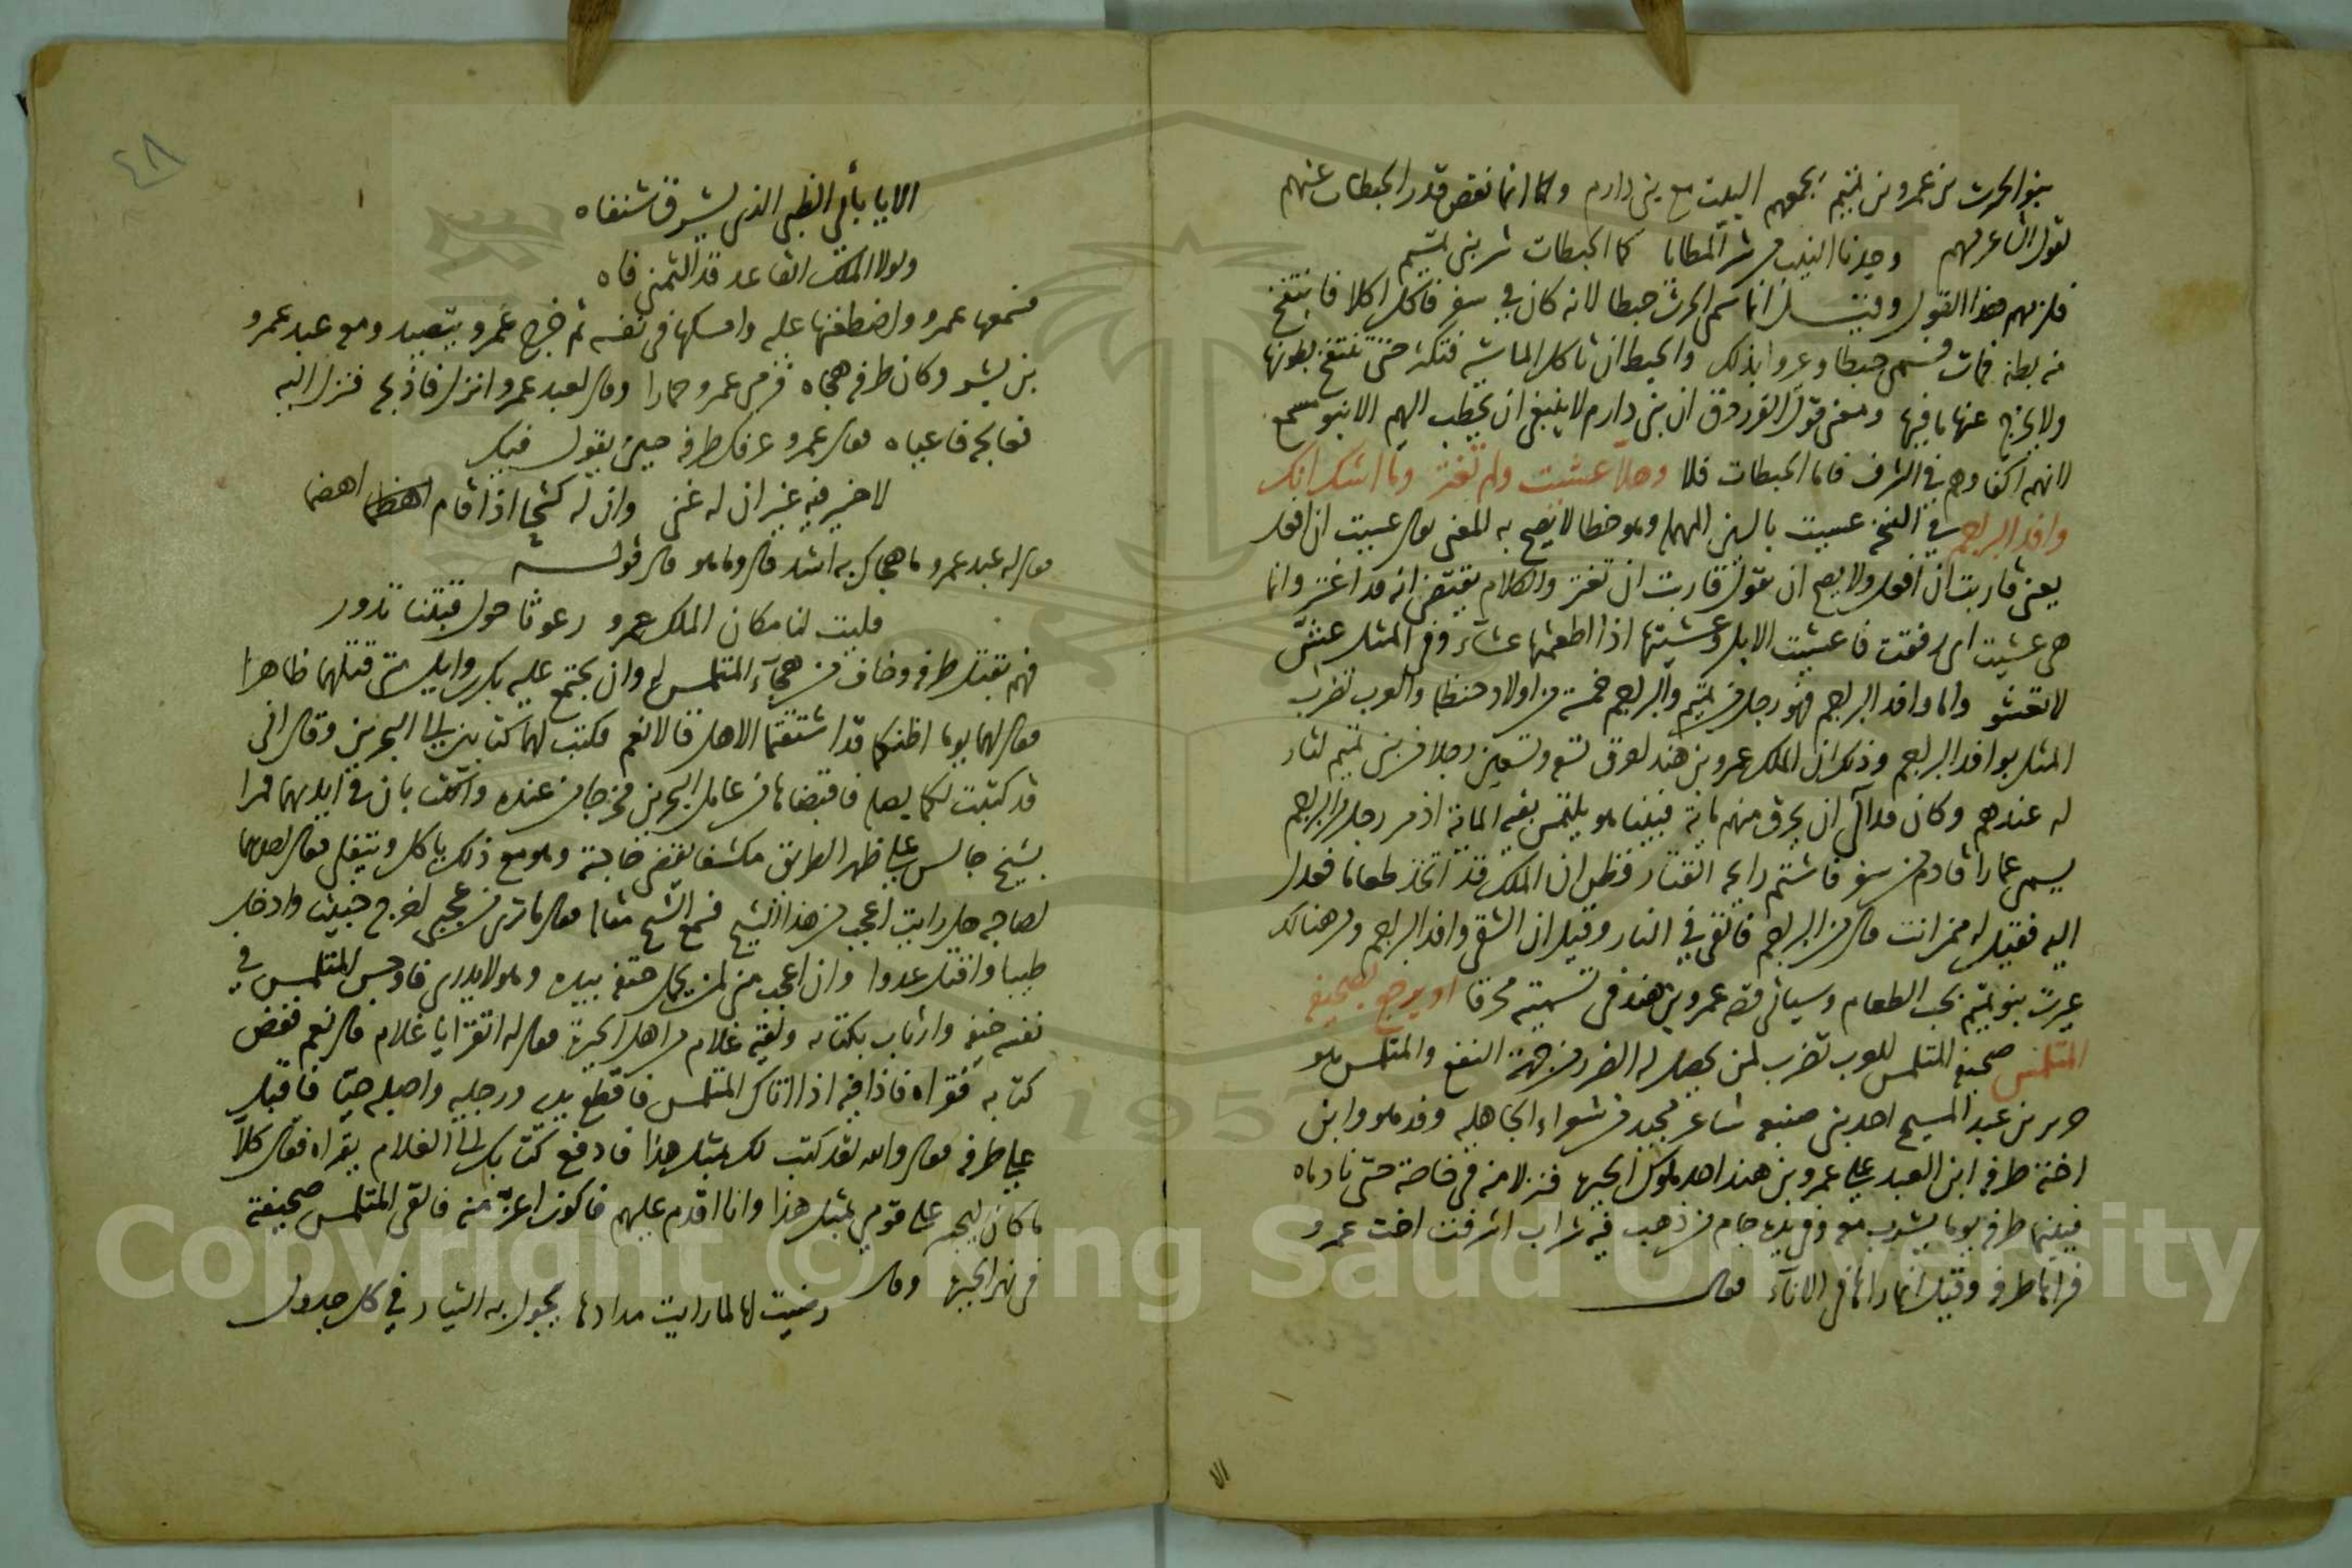 بنو الحرث بن عمرو بن تميم يجمعهم البيت مع بني دارم وانما نقص قدر الحبطات عنهم
لقول الشاعر فيهم وجدنا النيب من شر المطايا كما الحبطات شر بني تميم
فلزمهم هذا القول وقيل انما سمى الحرث حبطا لانه كان في سفر فاكل اكلا فانتفخ
منه بطنه فمات فسمى حبطا وعيروا بذلك والحبط ان تاكل الماشية فتكثر حتى تنتفخ بطونها
ولا يخرج عنها ما فيها ومعنى قول الفرزدق ان بني دارم لا ينبغي ان يخطب اليهم الا بنو مسمع
لانهم اكفاوهم في الشرف فاما الحبطات فلا وهلا عشيت ولم تغتر وما اشك انك
وافد البراجم في النسخ عسيت بالسين المهملة وهو خطا لا يصح به المعنى يقال عسيت ان افعل
يعنى قاربت ان افعل ولا يصح ان تقول قاربت ان تغتر والكلام يقتضى انه قد اغتر وانما
هى عشيت اى رفقت فاعشيت الابل وعشيتها اذا اطعمتها عشاء وفى المثل عش
لا تغتر واما وافد البراجم فهو رجل من تميم والبراجم خمسة من اولاد حنظلة والعرب تضرب
المثل بوافد البراجم وذلك ان الملك عمرو بن هند احرق تسعة وتسعين رجلا من بني تميم لثار
له عندهم وكان قد آلى ان يحرق منهم مائة فبينا هو يلتمس بقية المائة اذ مر رجل من البراجم
يسمى عمارا قادم من سفر فاشتم رايحة القتار فظن ان الملك قد اتخذ طعاما فعدل
اليه فقيل له ممن انت قال من البراجم فالقى في النار وقيل ان الشقى وافد البراجم ومن هنالك
عيرت بنو تميم بحب الطعام وسياتى قصة عمرو بن هند فى تسميته محرقا او يرجع بصحيفة
المتلمس صحيفة المتلمس للعرب تضرب لمن يحصل له الضرر من جهة النفع والمتلمس هو
جرير بن عبد المسيح احد بني ضبيعة شاعر مجيد من شعراء الجاهلية وفد هو وابن
اخته طرفة ابن العبد على عمرو بن هند احد ملوك الحيرة فنزلا منه فى خاصة حتى نادماه
فبينما طرفة يوما يشرب معه وفى يده جام من ذهب فيه شراب اشرفت اخت عمرو
فراها طرفة وقيل انما راها فى الاناء فقال
الا
٤٨
الا يا بأبي الظبي الذى يشرق شنفاه
ولولا الملك القاعد قد الثمنى فاه
فسمعها عمرو واضطغنها عليه وامسكها فى نفسه ثم خرج عمرو يتصيد ومعه عبد عمرو
بن بشر وكان طرفة هجاه فرمى عمرو حمارا وقال لعبد عمرو انزل فاذبحه فنزل اليه
فعالجه فاعياه فقال عمرو عرفك طرفة حين يقول فيك
لا خير فيه غير ان له غنى وان له كشحا اذا قام اهضما
فقال له عبد عمرو ما هجاك به اشد قال وما هو قال قوله
فليت لنا مكان الملك عمرو رغوثا حول قبتنا تدور
فهم بقتل طرفة وخاف من هجاء المتلمس له وان يجتمع عليه بكر بن وايل متى قتلهما ظاهرا
فقال لهما يوما اظنكما قد اشتقتما الاهل قالا نعم فكتب لهما كتابين الى البحرين وقال انى
قد كتبت لكما بصلة فاقبضاها من عامل البحرين فخرجا من عنده والكتابان فى ايديهما فمرا
بشيخ جالس على ظهر الطريق مكشفا يقضى حاجته وهو مع ذلك ياكل ويتفلى فقال احدهما
لصاحبه هل رايت اعجب من هذا الشيخ فسمع الشيخ مقاله فقال ما ترى من عجبى اخرج خبيثا وادخل
طيبا واقتل عدوا وان اعجب منى لمن يحمل حتفه بيده وهو لا يدرى فاوجس المتلمس في
نفسه خيفة وارتاب بكتابه ولقيه غلام من اهل الحيرة فقال له اتقرا يا غلام قال نعم ففض
كتابه فقراه فاذا فيه اذا اتاك المتلمس فاقطع يديه ورجليه واصلبه حيا فاقبل
على طرفة فقال والله لقد كتب لك بمثل هذا فادفع كتابك الى الغلام يقراه فقال كلا
ما كان ليجسر على قومي بمثل هذا وانا اقدم عليهم فاكون اعز منه فالقى المتلمس صحيفته
فى نهر الحيرة وقال
رضيت لها لما رايت مدادها يجول به التيار في كل جدول
Copyright © King Saud University
1957